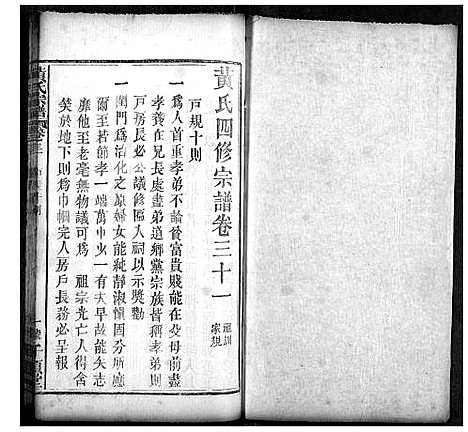 黃氏四修宗譜卷三十一
祖訓
家規
戶規十則
一為人首重孝弟不論貧富貴賤能在父母前盡
孝養在兄長處盡弟道鄉黨宗族皆稱孝弟則
戶房長必公議修匾入祠以示獎勸
一閨門為治化之原婦女能純靜淑慎固分所應
爾至若節孝一端萬中少一有早故能矢志
靡他至老毫無物議可為 祖宗光亡人得含
笑於地下則為巾幗完人房戶長務必呈報
黃氏宗譜 卷三